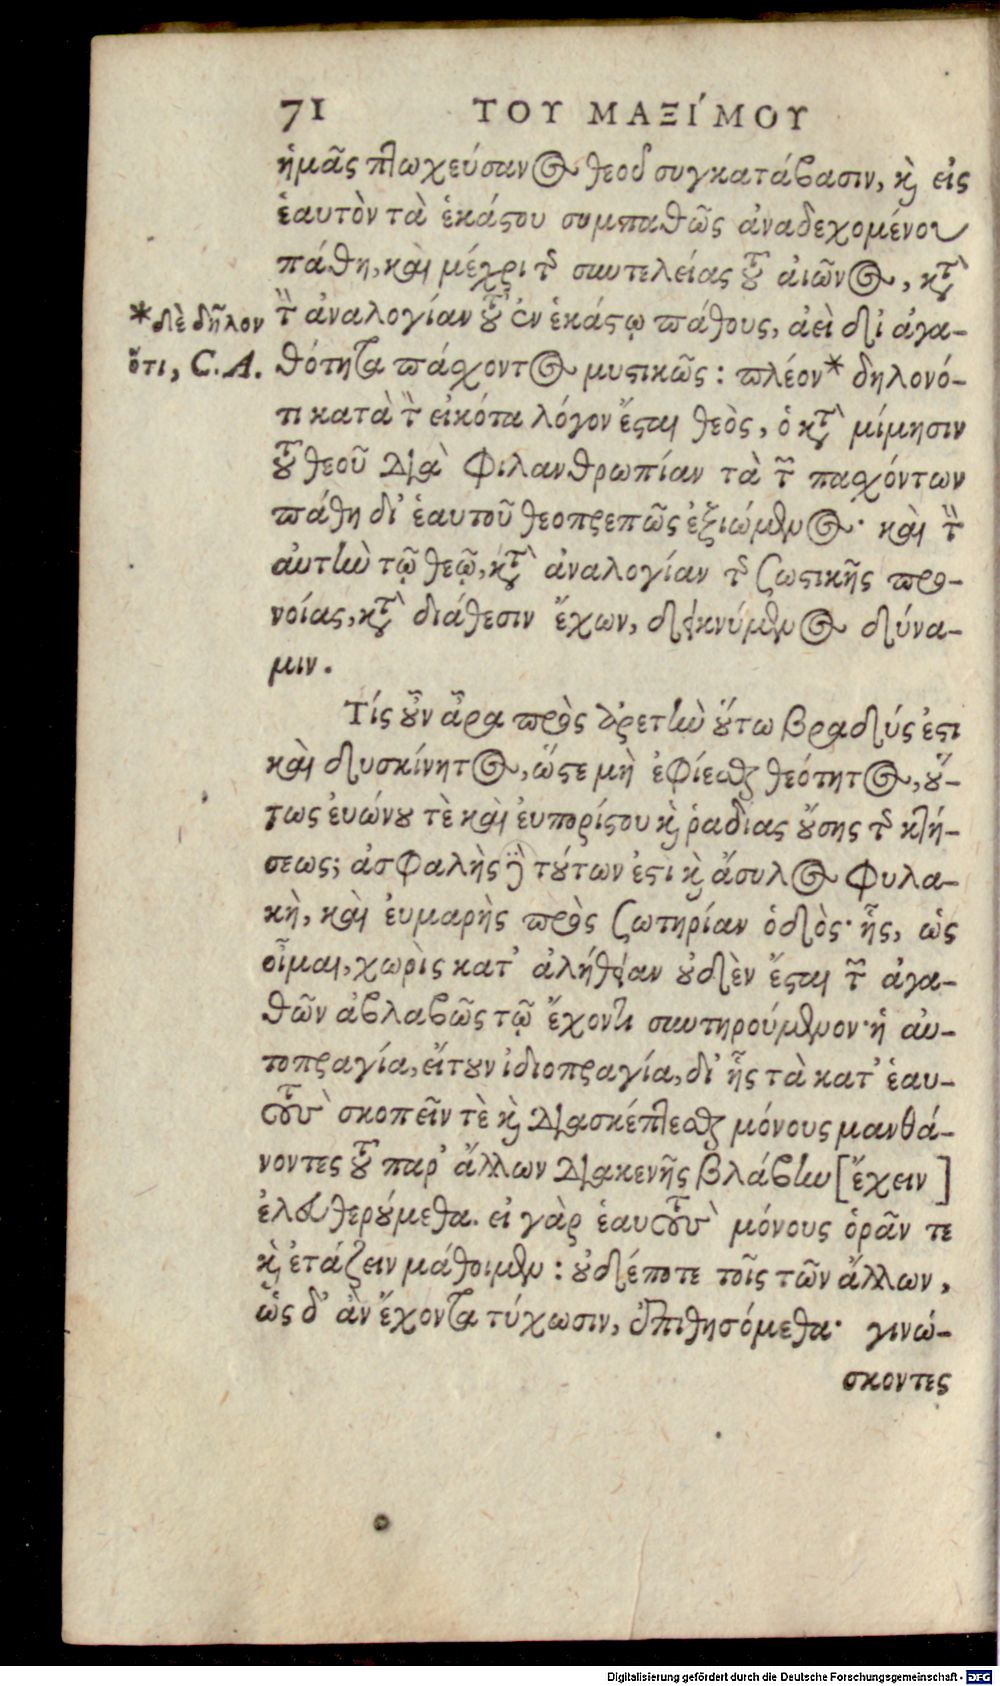 71 ΤΟΥ ΜΑΞΙ´ΜΟΥ
ἡμᾶς πτωχεύσαντος θεοῦ συγκατάβασιν, καὶ εἰς
ἑαυτὸν τὰ ἑκάστου συμπαθῶς ἀναδεχομένου
πάθη, καὶ μέχρι τῆς συντελείας τοῦ αἰῶνος, κατὰ
*δὲ δῆλον
τὴν ἀναλογίαν τοῦ ἐν ἑκάστῳ πάθους, ἀεὶ δι᾽ ἀγα-
ὅτι, C. A.
θότητα πάσχοντος μυστικῶς: πλέον* δηλονό-
τι κατὰ τὸν εἰκότα λόγον ἔσται θεὸς, ὁ κατὰ μίμησιν
τοῦ θεοῦ διὰ φιλανθρωπίαν τὰ τῶν παχόντων
πάθη δι᾽ ἑαυτοῦ θεοπρεπῶς ἐξιώμενος· καὶ τὴν
αὐτὴν τῷ θεῷ, κατὰ ἀναλογίαν τῆς σωστικῆς προ-
νοίας, κατὰ διάθεσιν ἔχων, δεικνύμενος δύνα-
μιν.
Τίς οὖν ἆρα πρὸς ἀρετὴν οὕτω βραδύς ἐστι
καὶ δυσκίνητος, ὥστε μὴ ἐφίεσθαι θεότητος, οὕ-
τως εὐώνου τὲ καὶ εὐπορίστου καὶ ῥαδίας οὔσης τῆς κτή-
σεως; ἀσφαλὴς γὰρ τούτων ἐστὶ καὶ ἄσυλος φυλα-
κὴ, καὶ εὐμαρὴς πρὸς σωτηρίαν ὁδὸς· ἧς, ὡς
οἶμαι, χωρὶς κατ᾽ ἀλήθειαν οὐδὲν ἔσται τῶν ἀγα-
θῶν ἀβλαβῶς τῷ ἔχοντι συντηρούμενον· ἡ αὐ-
τοπραγία, εἴτουν ἰδιοπραγία, δι᾽ ἧς τὰ κατ᾽ ἑαυ-
τοὺς σκοπεῖν τὲ καὶ διασκέπτεσθαι μόνους μανθά-
νοντες τοῦ παρ᾽ ἄλλων διακενῆς βλάβην [ἔχειν]
ἐλευθερούμεθα. εἰ γὰρ ἑαυτοὺς μόνους ὁρᾶν τε
καὶ ἐτάζειν μάθοιμεν: οὐδέποτε τοῖς τῶν ἄλλων,
ὡς δ᾽ ἂν ἔχοντα τύχωσιν, ἐπιθησόμεθα· γινώ-
σκοντες
Digitalisierung gefördert durch die Deutsche Forschungsgemeinschaft - DFG